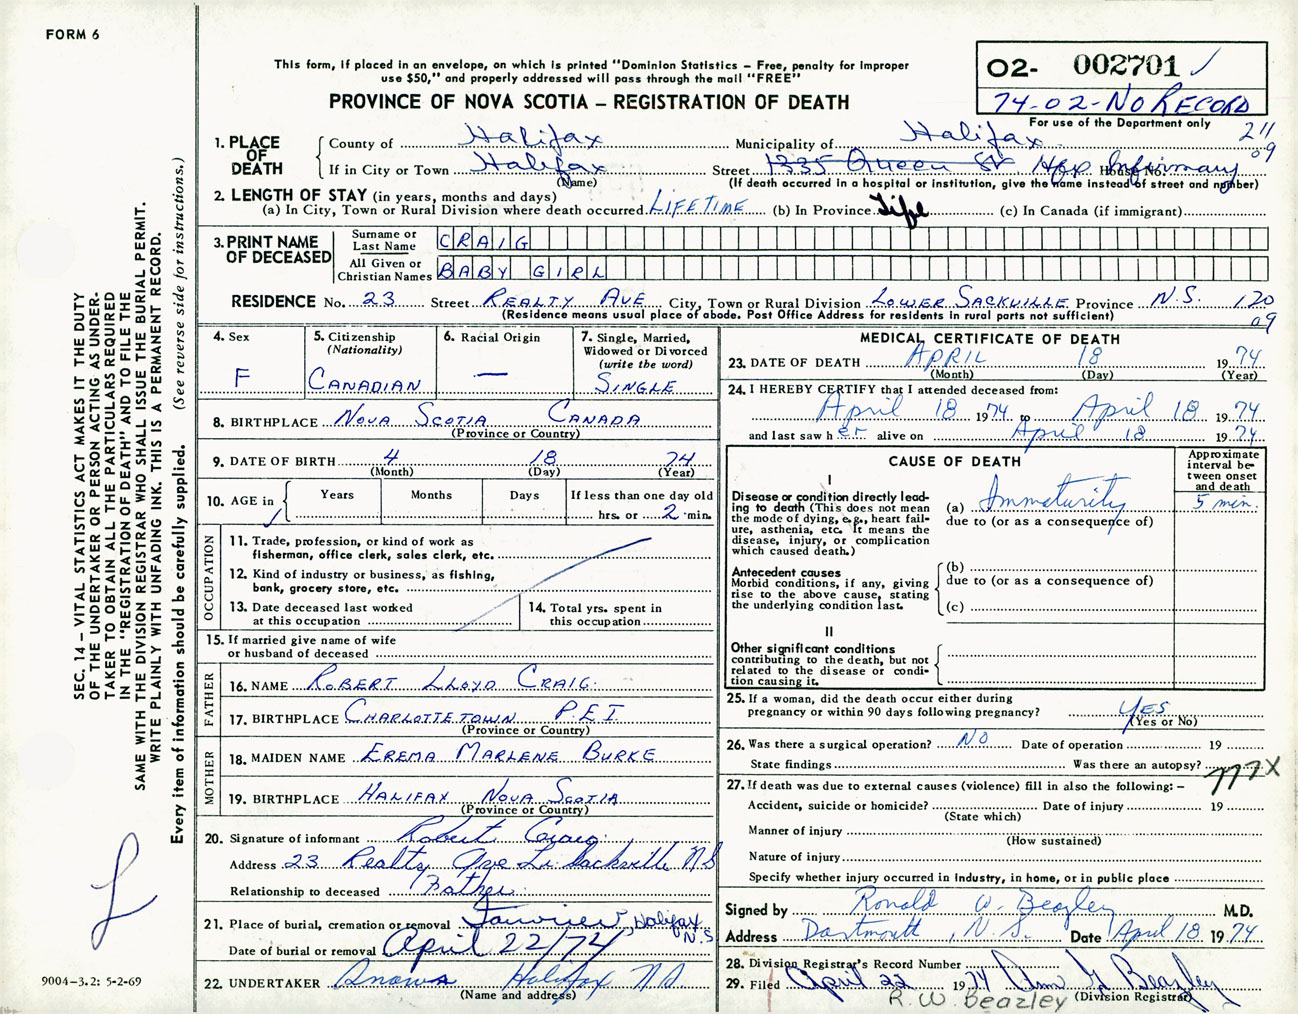 FORM 6
This form, if placed in an envelope, on which is printed "Dominion Statistics – Free, penalty for improper
use $50," and properly addressed will pass through the mail "FREE"
PROVINCE OF NOVA SCOTIA – REGISTRATION OF DEATH
02- 002701 ✓
74-02-NO RECORD
For use of the Department only
211
09
1. PLACE OF DEATH
County of Halifax Municipality of Halifax
If in City or Town Halifax Street 1335 Queen St. Hfx Infirmary House No.
(Name) (If death occurred in a hospital or institution, give the name instead of street and number)
2. LENGTH OF STAY (in years, months and days)
(a) In City, Town or Rural Division where death occurred LIFETIME (b) In Province Life (c) In Canada (if immigrant)
3. PRINT NAME OF DECEASED
Surname or Last Name CRAIG
All Given or Christian Names BABY GIRL
RESIDENCE No. 23 Street REALTY AVE City, Town or Rural Division LOWER SACKVILLE Province N.S. 120
09
(Residence means usual place of abode. Post Office Address for residents in rural parts not sufficient)
4. Sex
F
5. Citizenship
(Nationality)
CANADIAN
6. Racial Origin
—
7. Single, Married,
Widowed or Divorced
(write the word)
SINGLE
8. BIRTHPLACE NOVA SCOTIA CANADA
(Province or Country)
9. DATE OF BIRTH 4 18 74
(Month) (Day) (Year)
10. AGE in
Years Months Days If less than one day old
hrs. or 2 min.
OCCUPATION
11. Trade, profession, or kind of work as
fisherman, office clerk, sales clerk, etc.
12. Kind of industry or business, as fishing,
bank, grocery store, etc.
13. Date deceased last worked
at this occupation
14. Total yrs. spent in
this occupation
15. If married give name of wife
or husband of deceased
FATHER
16. NAME ROBERT LLOYD CRAIG
17. BIRTHPLACE CHARLOTTETOWN P.E.I
(Province or Country)
MOTHER
18. MAIDEN NAME EREMA MARLENE BURKE
19. BIRTHPLACE HALIFAX NOVA SCOTIA
(Province or Country)
20. Signature of informant Robert Craig
Address 23 Realty Ave Lr. Sackville NS
Relationship to deceased Father
21. Place of burial, cremation or removal Fairview, Halifax N.S.
Date of burial or removal April 22/74
22. UNDERTAKER Snows Halifax NS
(Name and address)
MEDICAL CERTIFICATE OF DEATH
23. DATE OF DEATH APRIL 18 1974
(Month) (Day) (Year)
24. I HEREBY CERTIFY that I attended deceased from:
April 18 1974 to April 18 1974
and last saw her alive on April 18 1974
CAUSE OF DEATH
Approximate
interval be-
tween onset
and death
I
Disease or condition directly lead-
ing to death (This does not mean
the mode of dying, e.g., heart fail-
ure, asthenia, etc. It means the
disease, injury, or complication
which caused death.)
(a) Immaturity 5 min.
due to (or as a consequence of)
Antecedent causes
Morbid conditions, if any, giving
rise to the above cause, stating
the underlying condition last.
(b)
due to (or as a consequence of)
(c)
II
Other significant conditions
contributing to the death, but not
related to the disease or condi-
tion causing it.
25. If a woman, did the death occur either during
pregnancy or within 90 days following pregnancy? YES
(Yes or No)
26. Was there a surgical operation? NO Date of operation 19
State findings Was there an autopsy?
777X
27. If death was due to external causes (violence) fill in also the following: –
Accident, suicide or homicide? Date of injury 19
(State which)
Manner of injury
(How sustained)
Nature of injury
Specify whether injury occurred in industry, in home, or in public place
Signed by Ronald W. Beazley M.D.
Address Dartmouth, N.S. Date April 18 1974
28. Division Registrar's Record Number
29. Filed April 22 1974 Beazley
(Division Registrar)
R. W. Beazley
SEC. 14 – VITAL STATISTICS ACT MAKES IT THE DUTY
OF THE UNDERTAKER OR PERSON ACTING AS UNDER-
TAKER TO OBTAIN ALL THE PARTICULARS REQUIRED
IN THE "REGISTRATION OF DEATH" AND TO FILE THE
SAME WITH THE DIVISION REGISTRAR WHO SHALL ISSUE THE BURIAL PERMIT.
WRITE PLAINLY WITH UNFADING INK. THIS IS A PERMANENT RECORD.
Every item of information should be carefully supplied. (See reverse side for instructions.)
9004–3.2: 5-2-69